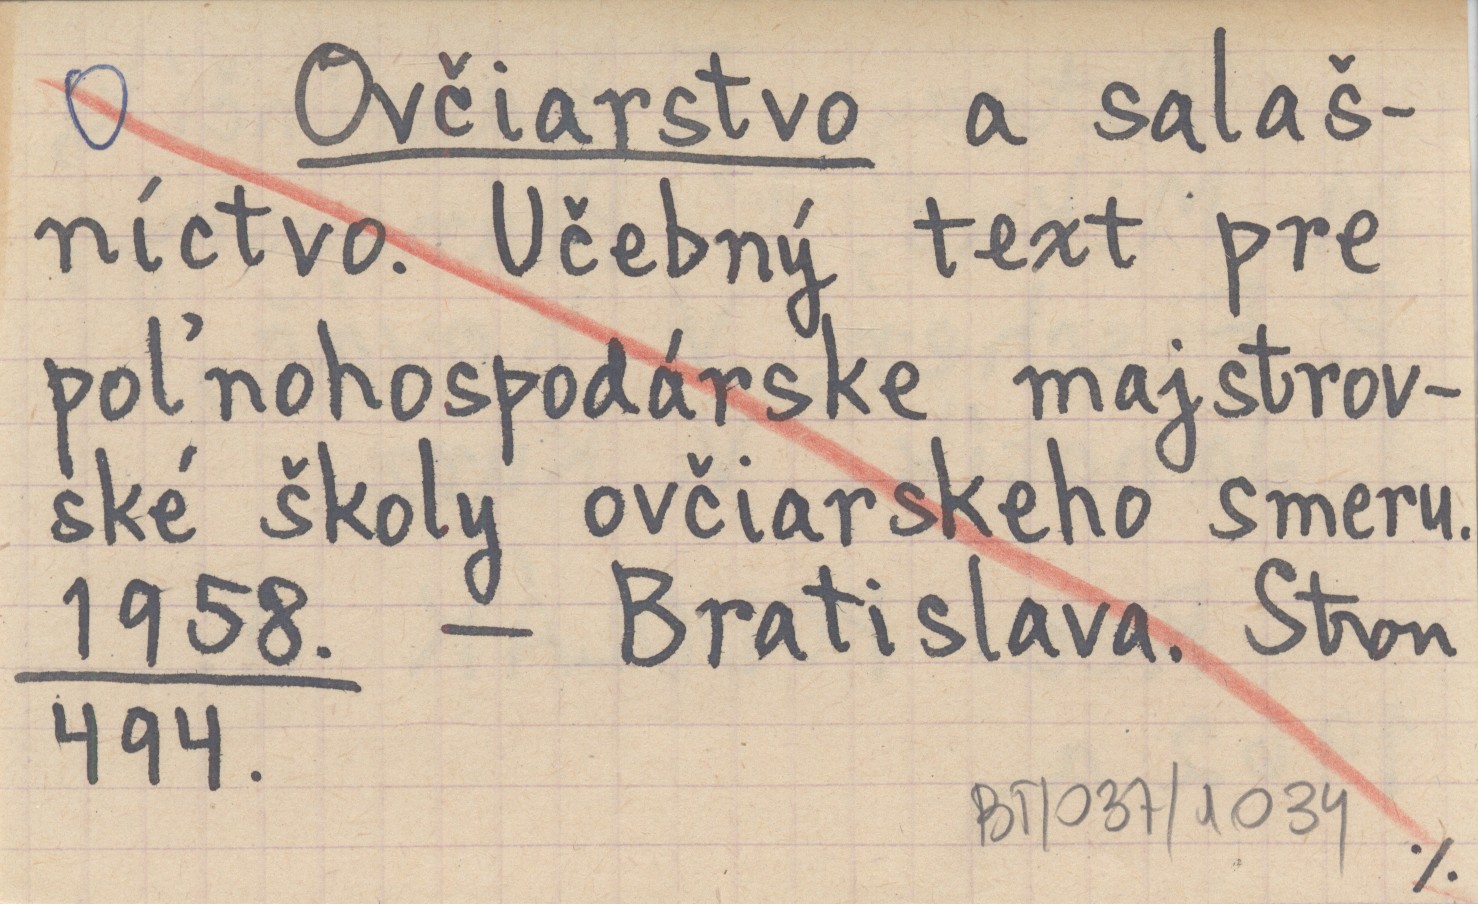 O Ovčiarstvo a salaš-
níctvo. Učebný text pre
poľnohospodárske majstrov-
ské školy ovčiarskeho smeru.
1958. — Bratislava. Stron
494.
BT/037/1034
./.